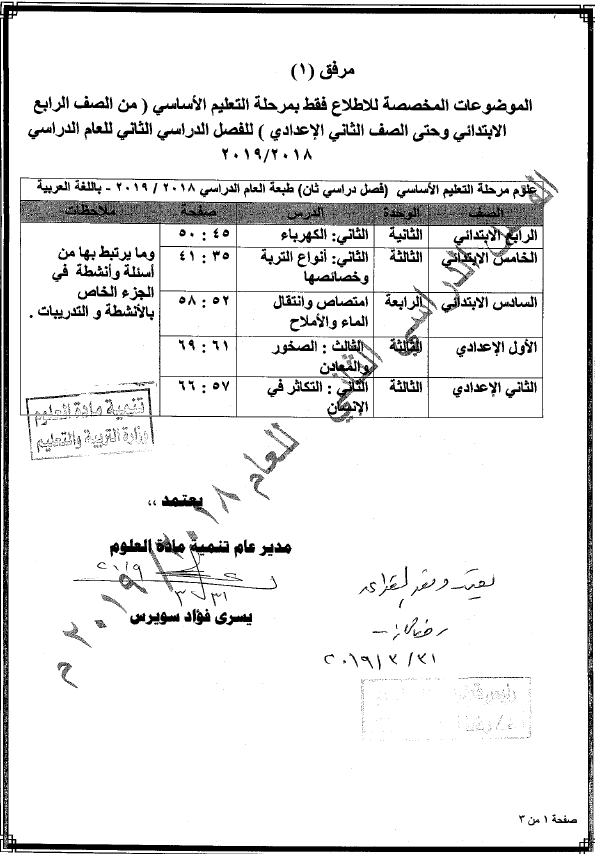 مرفق (١)
الموضوعات المخصصة للاطلاع فقط بمرحلة التعليم الأساسي ( من الصف الرابع
الابتدائي وحتى الصف الثاني الإعدادي ) للفصل الدراسي الثاني للعام الدراسي
٢٠١٩/٢٠١٨
علوم مرحلة التعليم الأساسي (فصل دراسي ثان) طبعة العام الدراسي ٢٠١٨ / ٢٠١٩ - باللغة العربية
الصف الوحدة الدرس صفحة ملاحظات
الرابع الابتدائي الثانية الثاني: الكهرباء ٤٥ : ٥٠
الخامس الابتدائي الثالثة الثاني: أنواع التربة وخصائصها ٣٥ : ٤١
السادس الابتدائي الرابعة امتصاص وانتقال الماء والأملاح ٥٢ : ٥٨
الأول الإعدادي الثالثة الثالث : الصخور والمعادن ٦١ : ٦٩
الثاني الإعدادي الثالثة الثاني : التكاثر في الإنسان ٥٧ : ٦٦
وما يرتبط بها من
أسئلة وأنشطة في
الجزء الخاص
بالأنشطة و التدريبات .
الفصل الدراسي الثاني للعام ٢٠١٨ / ٢٠١٩ م
تنمية مادة العلوم
وزارة التربية والتعليم
يعتمد ،،
مدير عام تنمية مادة العلوم
يسرى فؤاد سويرس
٢٠١٩/٣/٣١
صفحة ١ من ٣